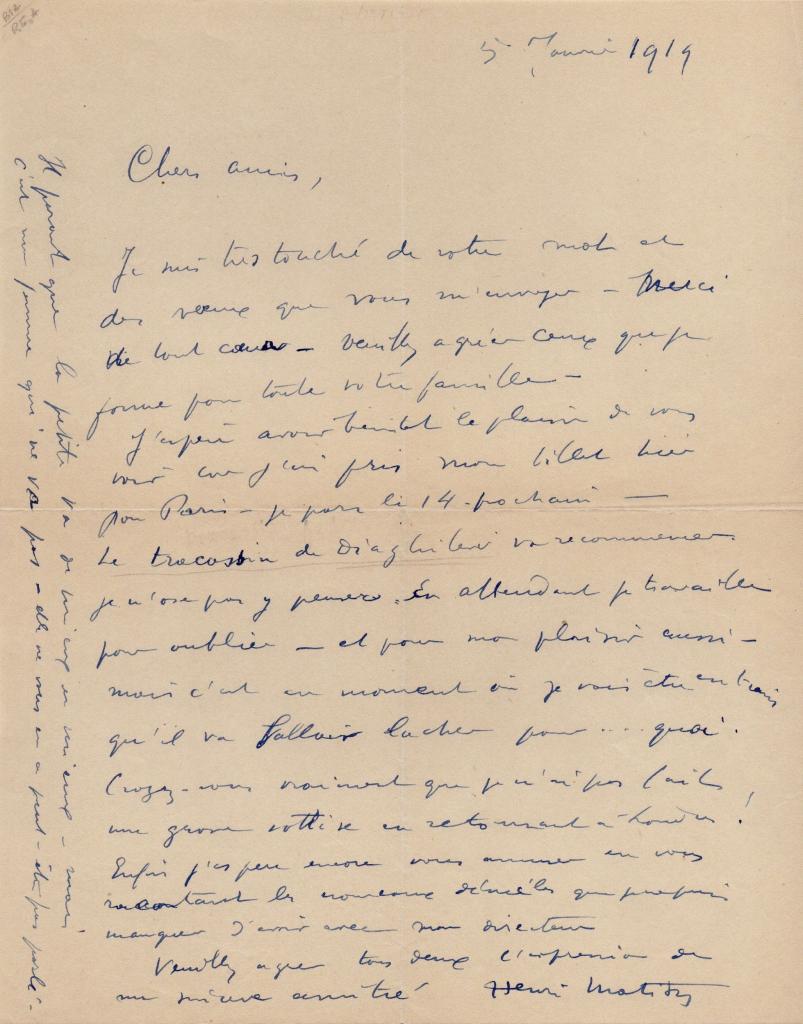 5 Janvier 1919
Chers amis,
Je suis très touché de votre mot et
des vœux que vous m'envoyez – Merci
de tout cœur – veuillez agréer ceux que je
forme pour toute votre famille –
J'espère avoir bientôt le plaisir de vous
voir car j'ai pris mon billet hier
pour Paris – je pars le 14 prochain –
Le tracassin de Diaghilew va recommencer
je n'ose pas y penser. En attendant je travaille
pour oublier – et pour mon plaisir aussi –
mais c'est au moment où je vais être en train
qu'il va falloir lacher pour ... quoi.
Croyez-vous vraiment que je n'ai pas fait
une grosse sottise en retournant à Londres !
Enfin j'espère encore vous amuser en vous
racontant les nouveaux démêlés que je ne puis
manquer d'avoir avec mon directeur
Veuillez agréer tous deux l'expression de
ma sincère amitié Henri Matisse
Il parait que la petite va de mieux en mieux – mais
c'est une femme qui ne va pas – elle ne vous en a peut-être pas parlé –